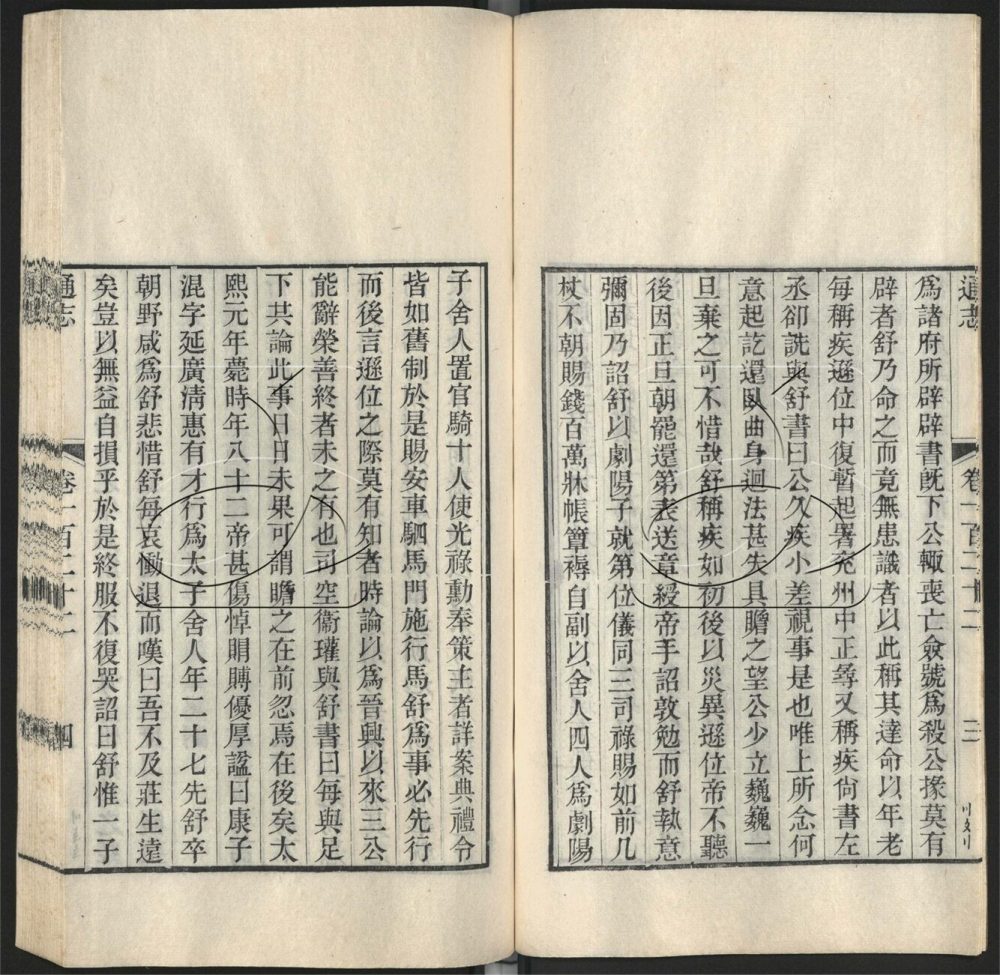 通志
卷一百二十二
三
爲諸府所辟辟書旣下公輒喪亡僉號爲殺公掾莫有
辟者舒乃命之而竟無患識者以此稱其達命以年老
每稱疾遜位中復暫起署兗州中正尋又稱疾尙書左
丞卻詵與舒書曰公久疾小差視事是也唯上所念何
意起訖還臥曲身迴法甚失具贍之望公少立巍巍一
旦棄之可不惜哉舒稱疾如初後以災異遜位帝不聽
後因正旦朝罷還第表送章綬帝手詔敦勉而舒執意
彌固乃詔舒以劇陽子就第位儀同三司祿賜如前几
杖不朝賜錢百萬牀帳簟褥自副以舍人四人爲劇陽
子舍人置官騎十人使光祿勳奉策主者詳案典禮令
皆如舊制於是賜安車駟馬門施行馬舒爲事必先行
而後言遜位之際莫有知者時論以爲晉興以來三公
能辭榮善終者未之有也司空衞瓘與舒書曰每與足
下共論此事日日未果可謂瞻之在前忽焉在後矣太
熙元年薨時年八十二帝甚傷悼賵賻優厚諡曰康子
混字延廣淸惠有才行爲太子舍人年二十七先舒卒
朝野咸爲舒悲惜舒每哀慟退而嘆曰吾不及莊生遠
矣豈以無益自損乎於是終服不復哭詔曰舒惟一子
通志
卷一百二十二
四